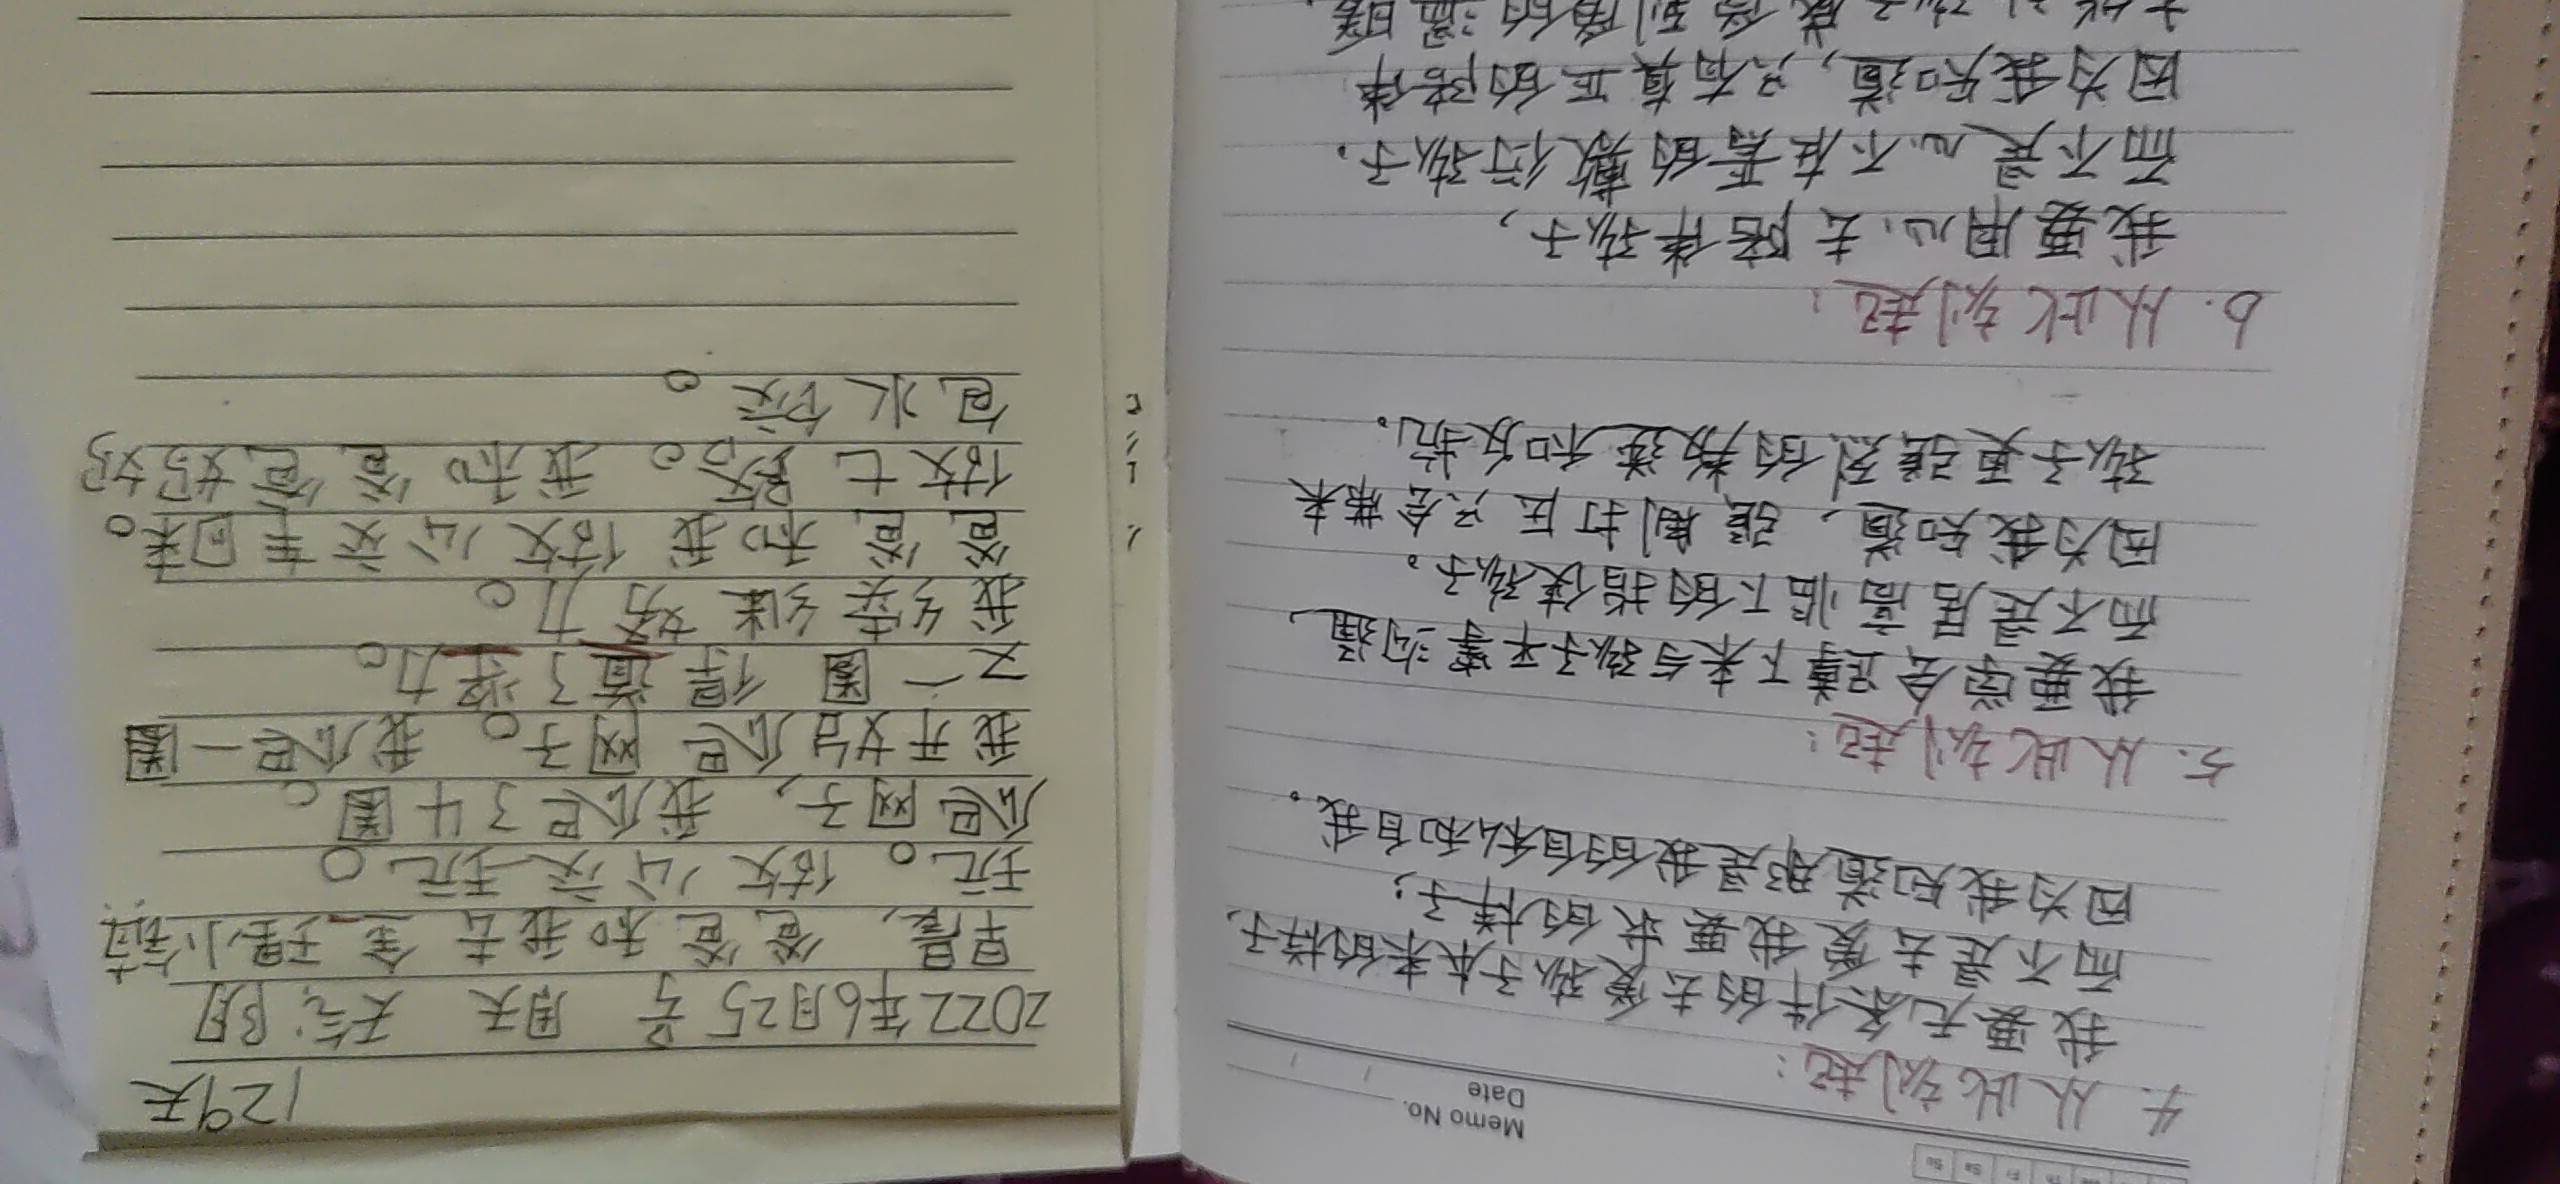 Memo No.
Date
Fr Sa Su
4. 从此刻起:
我要无条件的去爱孩子本来的样子,
而不是去爱我要求的样子;
因为我知道那是我的自私和自我。
5. 从此刻起:
我要学会蹲下来与孩子平等沟通、
而不是居高临下的指使孩子。
因为我知道、强制打压只会带来
孩子更强烈的叛逆和反抗。
6. 从此刻起:
我要用心去陪伴孩子,
而不是心不在焉的敷衍孩子.
因为我知道,只有真正的陪伴
129天
2022年6月25号 周天 天气:阴
早晨,爸爸和我去
玩。 玩。
爬网子,我爬34圈。
我开始爬网子。我爬一圈
又一圈 了 力。
我 努力。
爸爸和我 回来。
我和爸爸好好
包水饺。